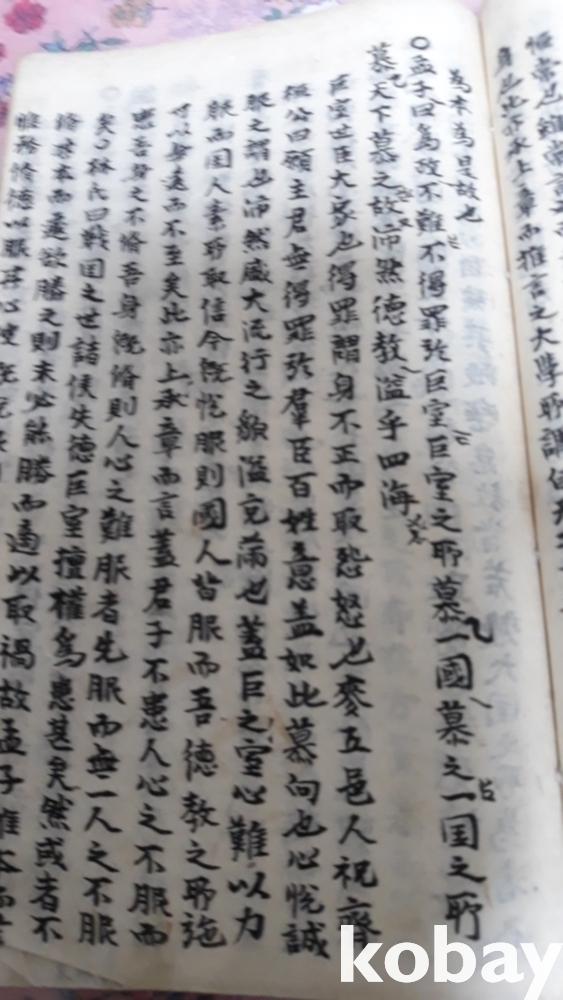 恒常也雖常言之
身也此亦承上章而推言之大學所謂自天子
為本為是故也
○孟子曰為政不難不得罪於巨室巨室之所慕一國慕之一国之所
慕天下慕之故沛然德教溢乎四海
巨室世臣大家也得罪謂身不正而取怨怒也麥丘邑人祝齊
桓公曰願主君無得罪於羣臣百姓意盖如此慕向也心悅誠
服之謂也沛然盛大流行之貌溢充滿也蓋巨之室心難以力
服而国人素所取信今旣悅服則國人皆服而吾德教之所施
可以無遠而不至矣此亦上承章而言蓋君子不患人心之不服而
患吾身之不脩吾身旣脩則人心之難服者先服而無一人之不服
矣〇林氏曰戰国之世諸侯失德巨室擅權為患甚矣然或者不
脩其本而遽欲勝之則未必能勝而適以取禍故孟子推本而言
惟務脩德以服其心
kobay